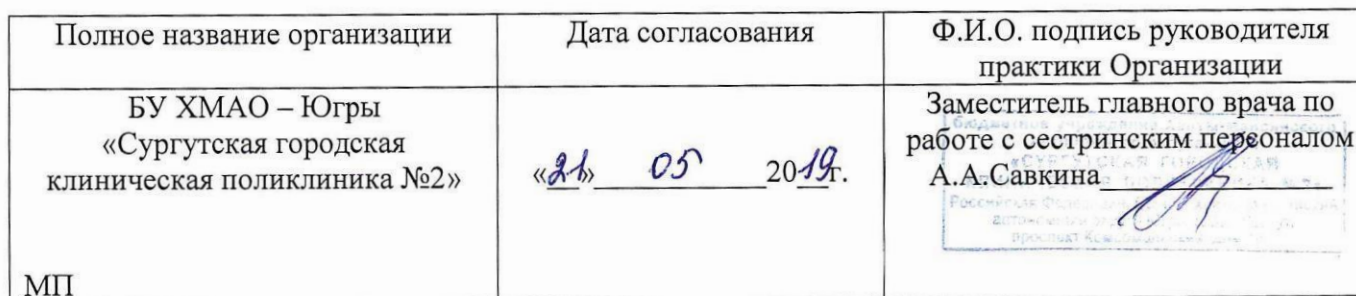 Полное название организации
Дата согласования
Ф.И.О. подпись руководителя
практики Организации
БУ ХМАО – Югры
«Сургутская городская
клиническая поликлиника №2»
МП
«21» 05 2019г.
Заместитель главного врача по
работе с сестринским персоналом
А.А.Савкина
«СУРГУТСКАЯ ГОРОДСКАЯ